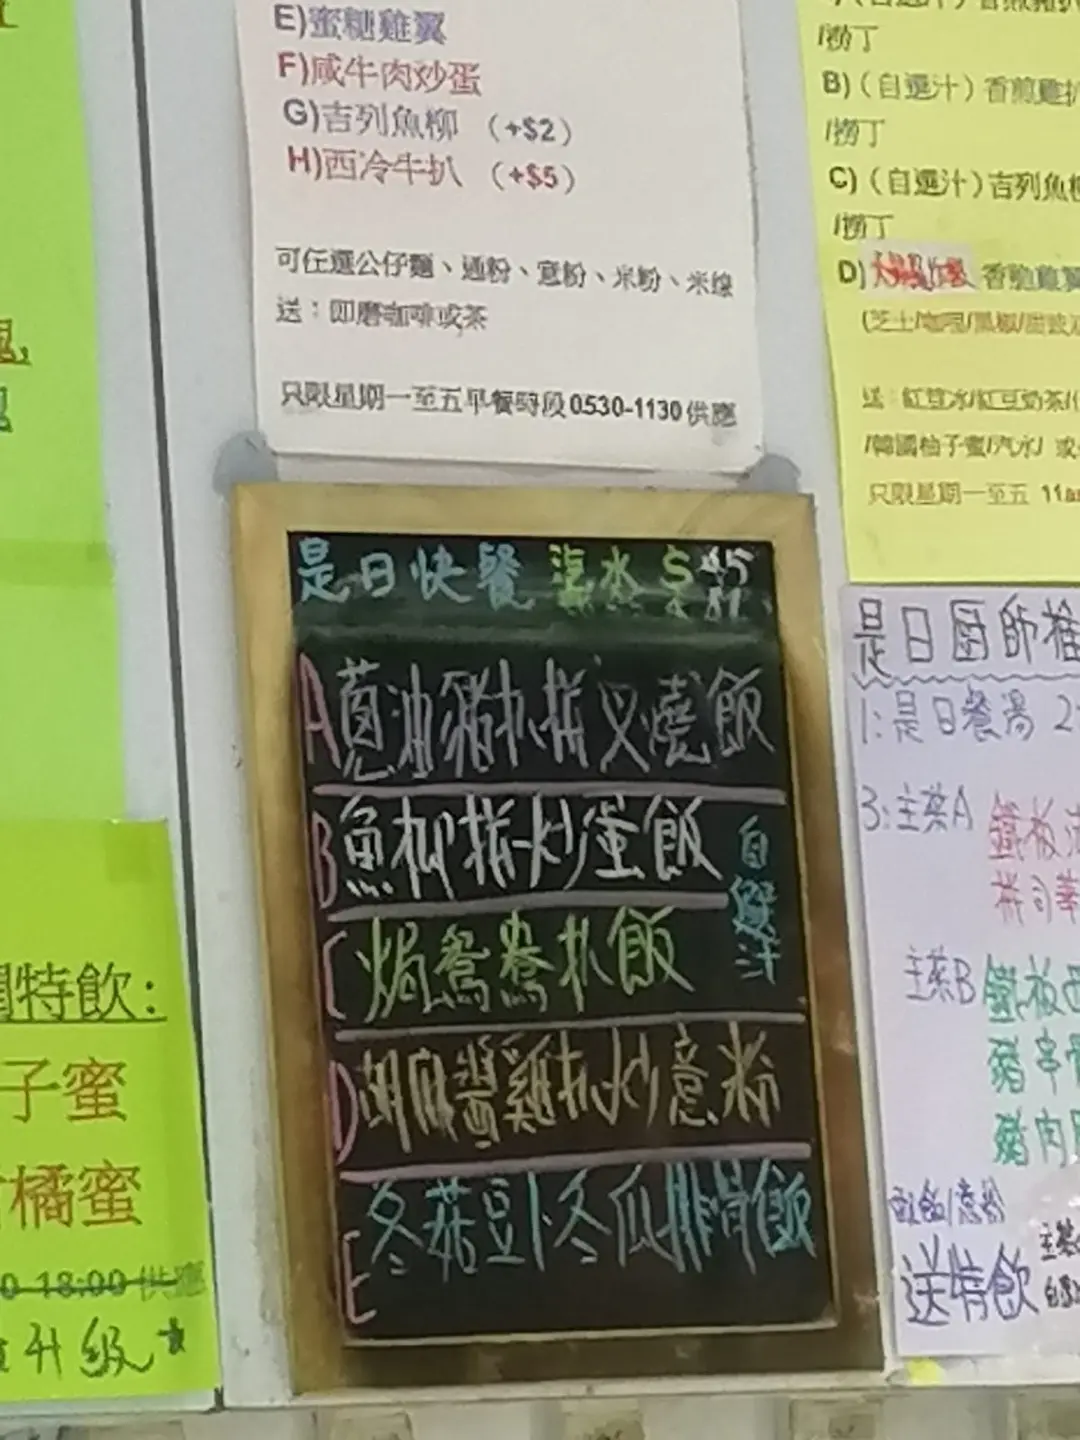 E)蜜糖雞翼
F)咸牛肉炒蛋
G)吉列魚柳 (+$2)
H)西冷牛扒 (+$5)
可任選公仔麵、通粉、意粉、米粉、米線
送：即磨咖啡或茶
只限星期一至五早餐時段0530-1130供應
/撈丁
B)(自選汁)香煎雞扒
/撈丁
C)(自選汁)吉列魚柳
/撈丁
D) 香脆雞翼
(芝士/咖喱/黑椒/甜豉油
送：紅豆冰/紅豆奶茶/
/韓國柚子蜜/汽水/ 或
只限星期一至五 11a
是日快餐 汽水 $
A 葱油豬扒拼叉燒飯
B 魚柳拼炒蛋飯
自選汁
C 焗鴛鴦扒飯
D 胡麻醬雞扒炒意粉
E 冬菇豆卜冬瓜排骨飯
是日厨師推
1:是日餐湯 2
3:主菜A 鐵板
主菜B 鐵板西
豬肉
送特飲
特飲:
子蜜
橘蜜
0-18:00 供應
升級★